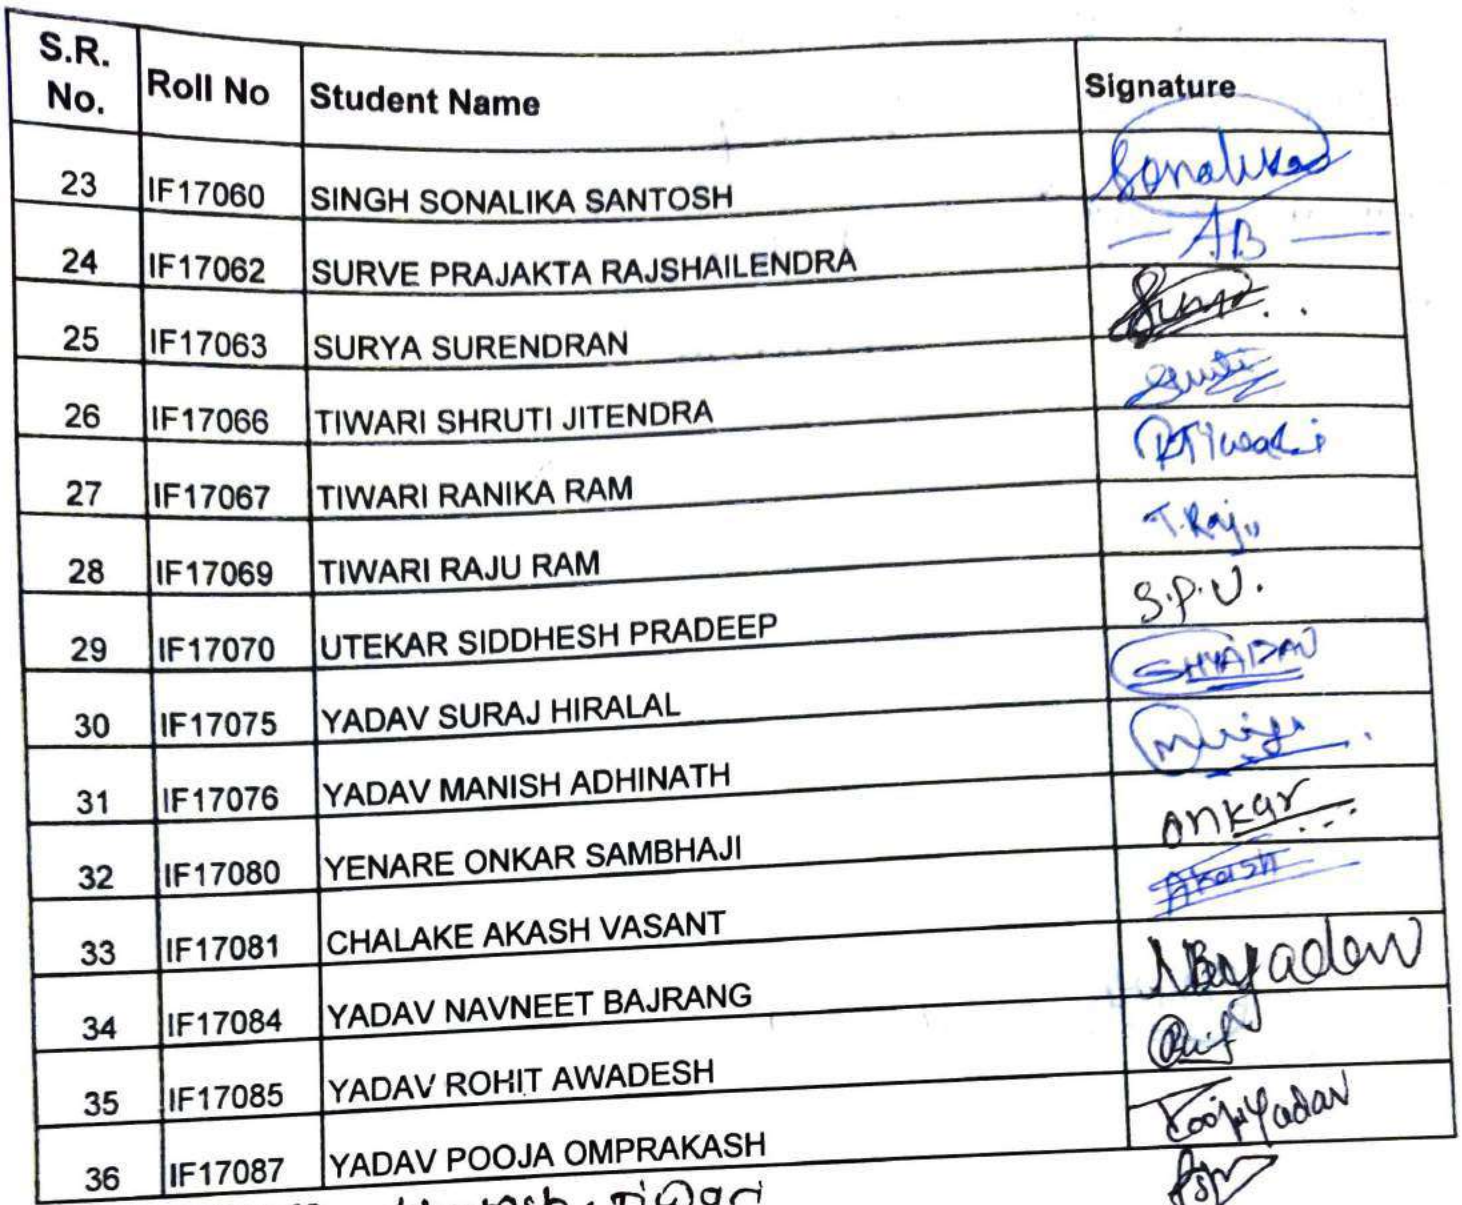 S.R. No. Roll No Student Name Signature
23 IF17060 SINGH SONALIKA SANTOSH Sonalika
24 IF17062 SURVE PRAJAKTA RAJSHAILENDRA — AB —
25 IF17063 SURYA SURENDRAN
26 IF17066 TIWARI SHRUTI JITENDRA
27 IF17067 TIWARI RANIKA RAM RTiwari
28 IF17069 TIWARI RAJU RAM T.Raju
29 IF17070 UTEKAR SIDDHESH PRADEEP S.P.U.
30 IF17075 YADAV SURAJ HIRALAL SHYADAV
31 IF17076 YADAV MANISH ADHINATH
32 IF17080 YENARE ONKAR SAMBHAJI onkar
33 IF17081 CHALAKE AKASH VASANT Akash
34 IF17084 YADAV NAVNEET BAJRANG NByadav
35 IF17085 YADAV ROHIT AWADESH
36 IF17087 YADAV POOJA OMPRAKASH PoojaYadav